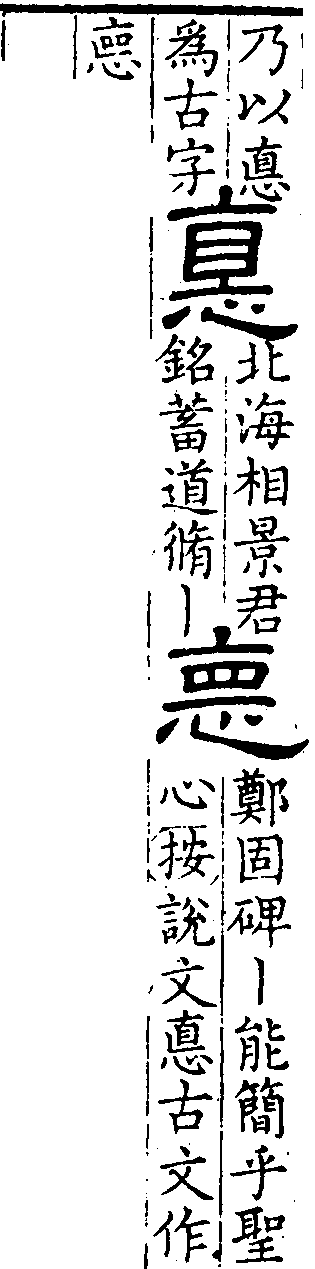 乃以悳
爲古字
悳
北海相景君
銘蓄道脩丨
㥁
鄭固碑丨能簡乎聖
心按說文悳古文作
㥁